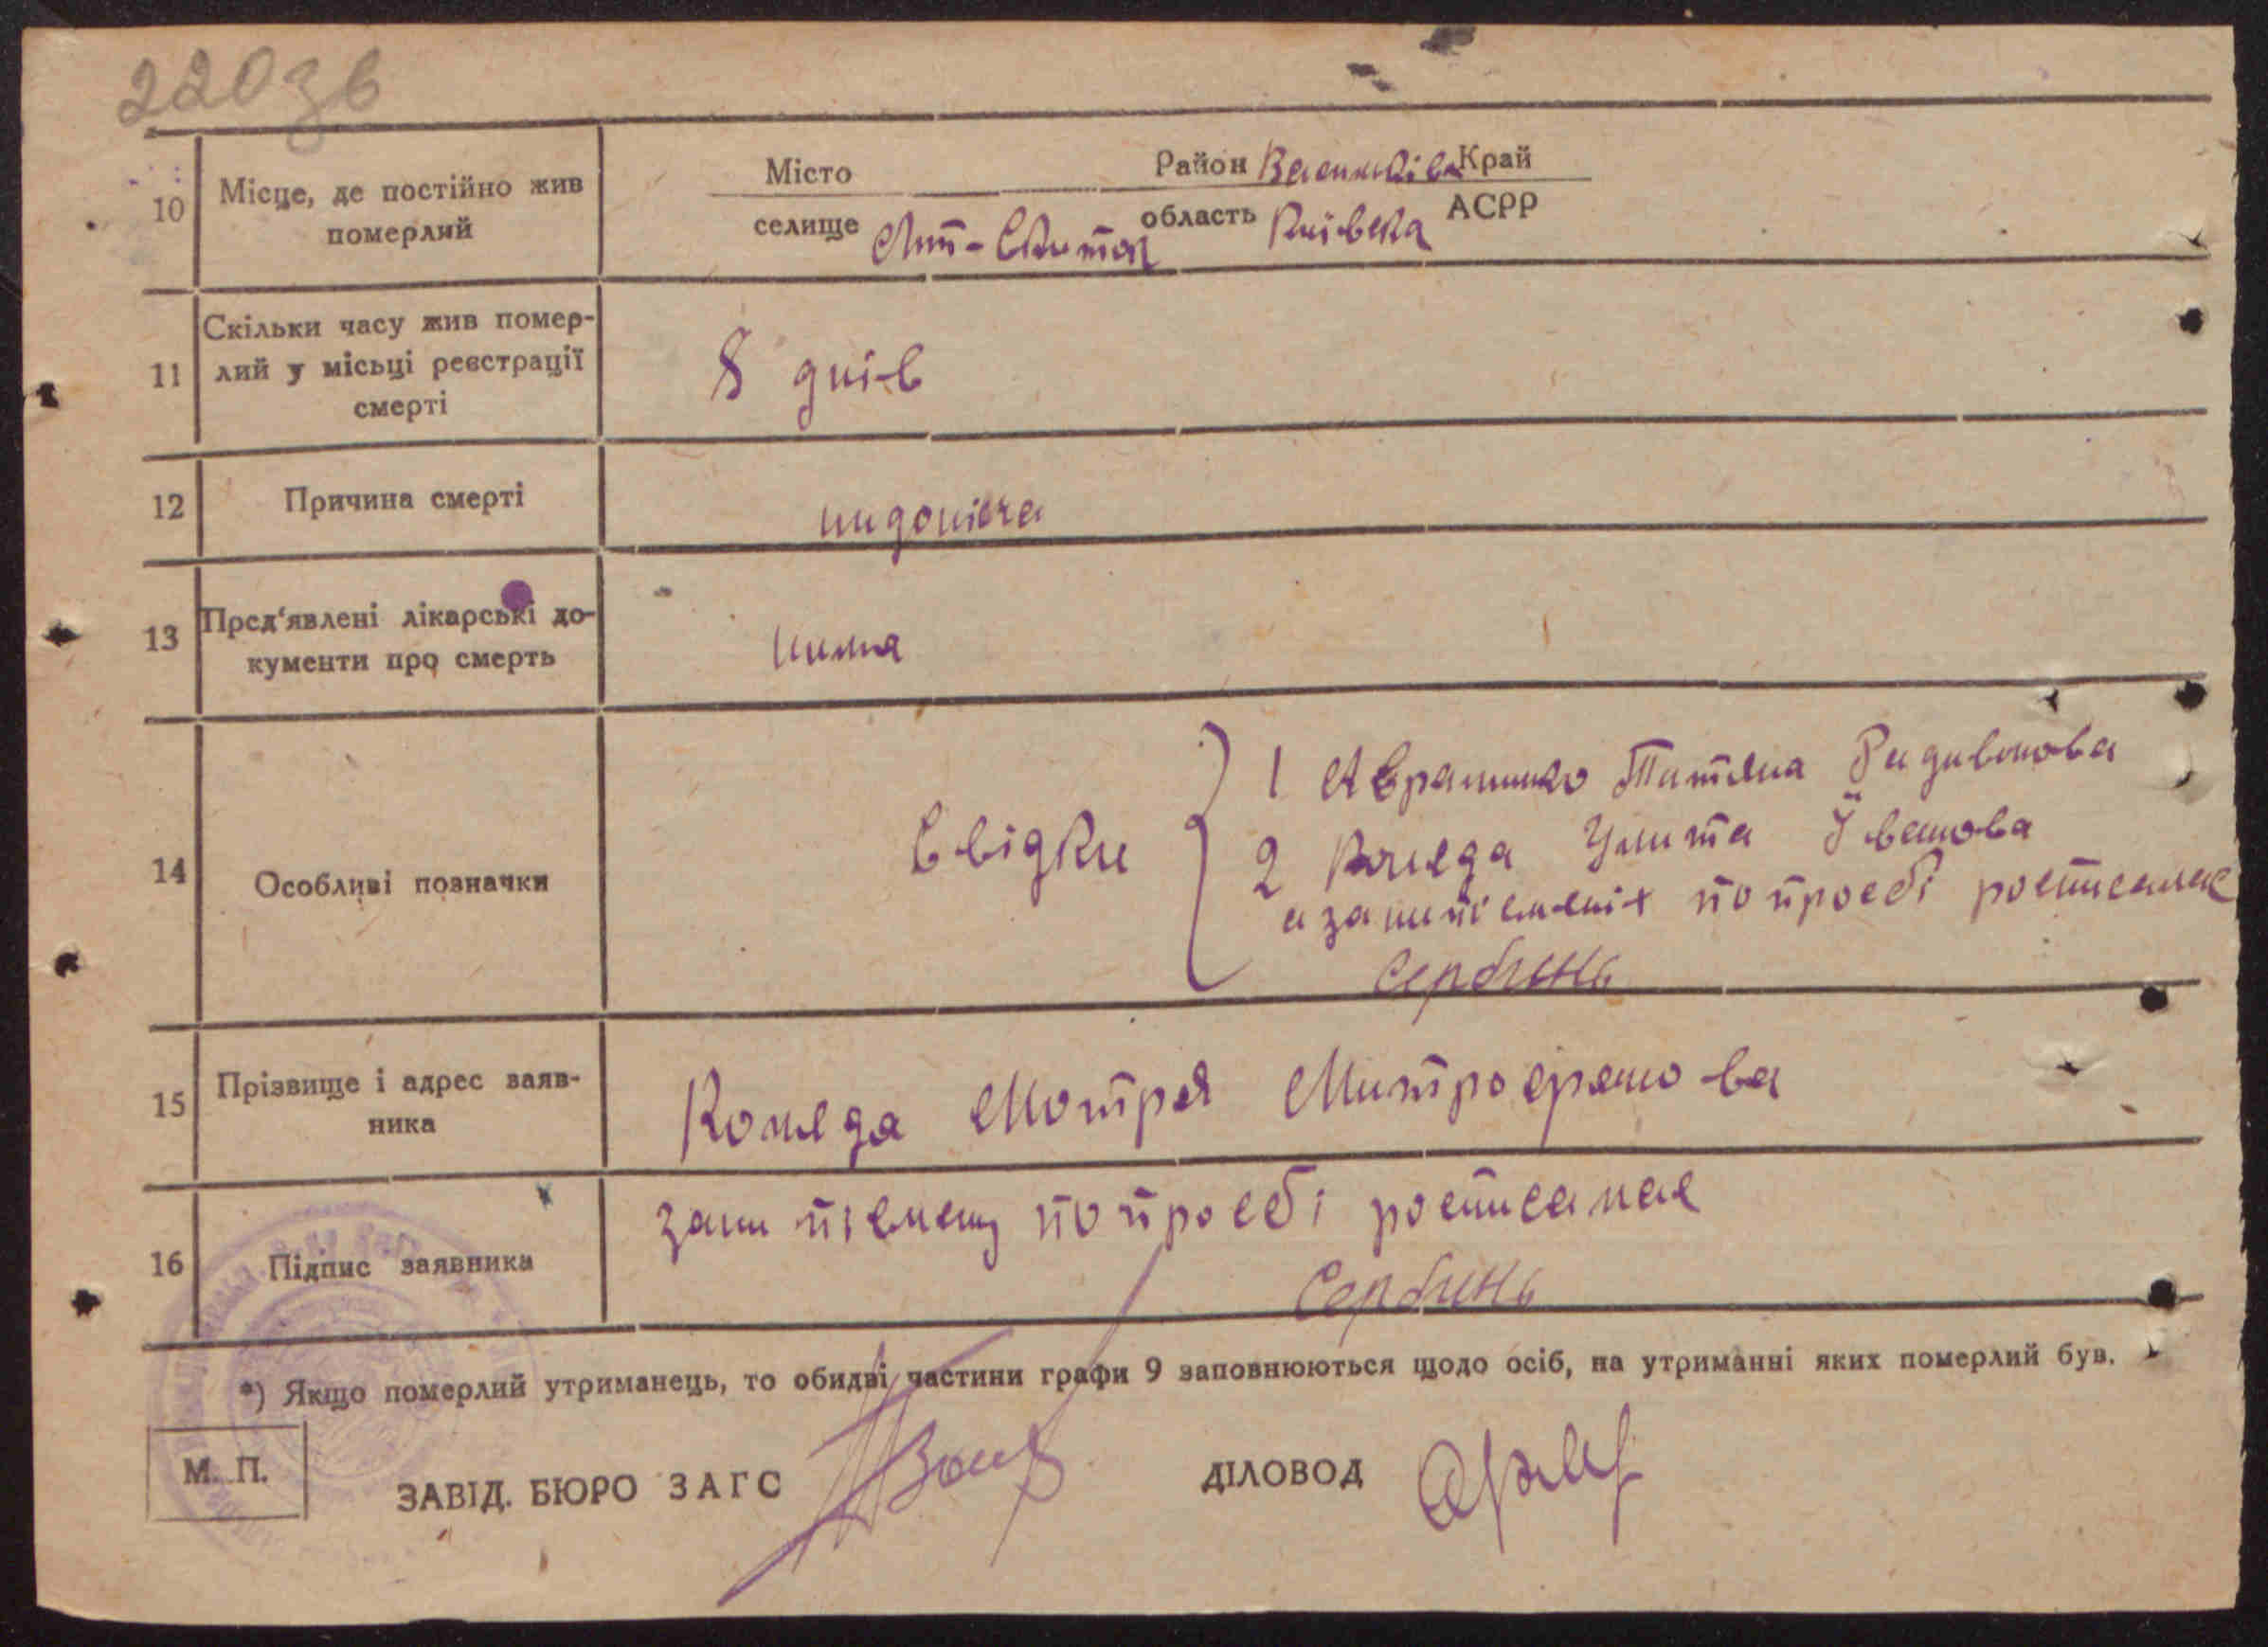 220зв
10 Місце, де постійно жив
померлий
Місто Район Васильків Край
селище Мит-Ськиток область Київська АСРР
11 Скільки часу жив помер-
лий у місьці реєстрації
смерті
8 днів
12 Причина смерті
13 Пред'явлені лікарські до-
кументи про смерть
нима
14 Особливі позначки
Свідки
1 Авраминко Титяна Радивонова
2 Коляда Улита Івановa
а за нипісменіх по просбі росписалас
Сербинь
15 Прізвище і адрес заяв-
ника
Коляда Мотря Митрофанова
16 Підпис заявника
за ни пісмену по просбі росписалас
Сербинь
*) Якщо померлий утриманець, то обидві частини графи 9 заповнюються щодо осіб, на утриманні яких померлий був.
М. П.
ЗАВІД. БЮРО ЗАГС
ДІЛОВОД